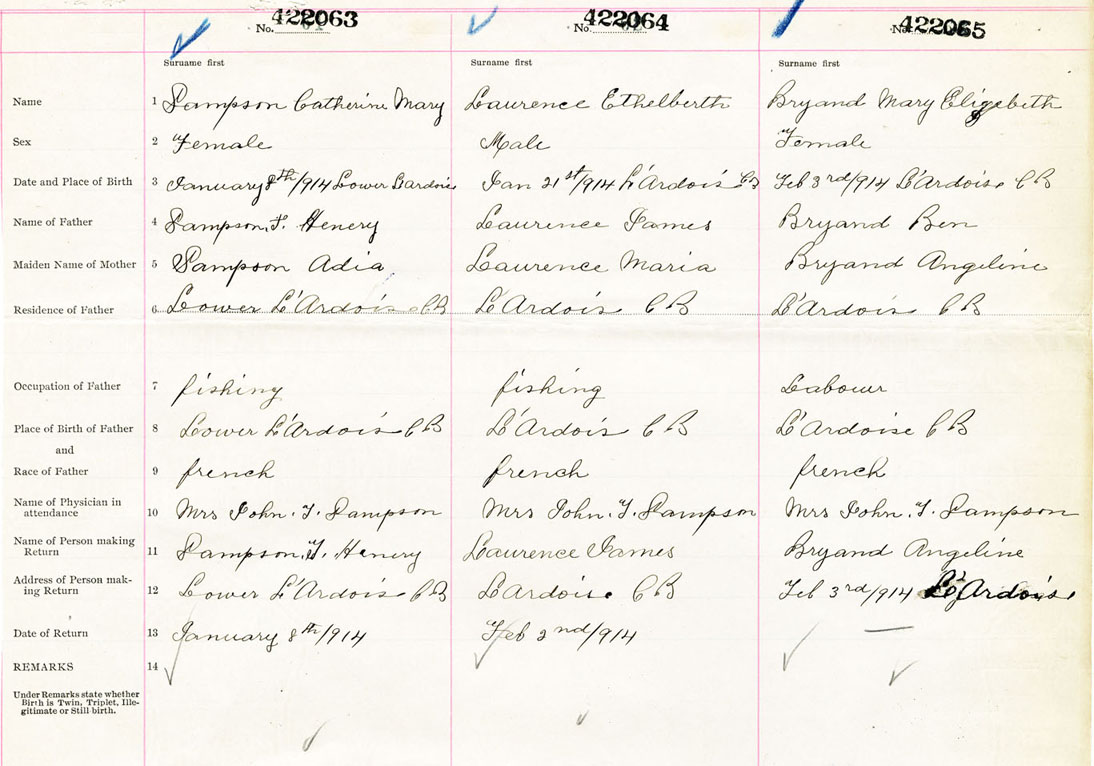 No. 422063 No. 422064 No. 422065
Surname first Surname first Surname first
Name 1 Sampson Catherine Mary Laurence Ethelberth Bryand Mary Elizabeth
Sex 2 Female Male Female
Date and Place of Birth 3 January 8th/914 Lower Lardoise Jan 21st/914 L'Ardois CB Feb 3rd/914 L'Ardoise CB
Name of Father 4 Sampson, T. Henery Laurence James Bryand Ben
Maiden Name of Mother 5 Sampson Adia Laurence Maria Bryand Angeline
Residence of Father 6 Lower L'Ardoise CB L'Ardois CB L'Ardois CB
Occupation of Father 7 fishing fishing Labour
Place of Birth of Father 8 Lower L'Ardois CB L'Ardois CB L'Ardoise CB
and
Race of Father 9 french french french
Name of Physician in
attendance 10 Mrs John. T. Sampson Mrs John. T. Sampson Mrs John. T. Sampson
Name of Person making
Return 11 Sampson, T. Henery Laurence James Bryand Angeline
Address of Person mak-
ing Return 12 Lower L'Ardois CB LArdoise CB Feb 3rd/914 L'Ardois
Date of Return 13 January 8th/914 Feb 2nd/914 —
REMARKS 14
Under Remarks state whether
Birth is Twin, Triplet, Ille-
gitimate or Still-birth.